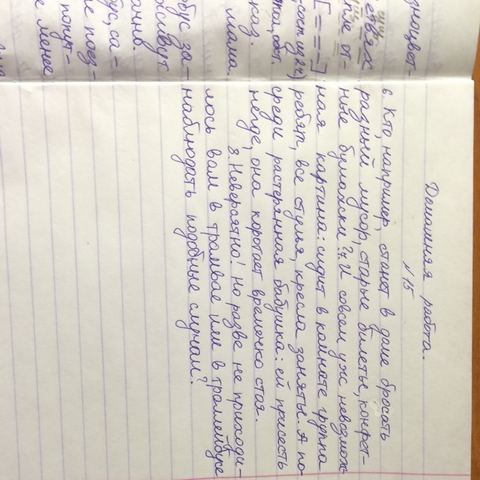 зноцвет-
каз.
мама.
бус за-
бус, са-
попут-
е менее
Домашняя работа.
№15
6. Кто например, станет в доме бросать
разный мусор, старые билеты, конфет-
ные бумажки? 7. И совсем уж невозмож
ная картина: сидит в комнате группа
ребят, все стулья, кресла заняты. А по-
среди растерянная бабушка: ей присесть
негде, она коротает времечко стоя.
8. Невероятно! Но разве не приходи-
лось вам в трамвае или в траллейбусе
наблюдать подобные случаи?